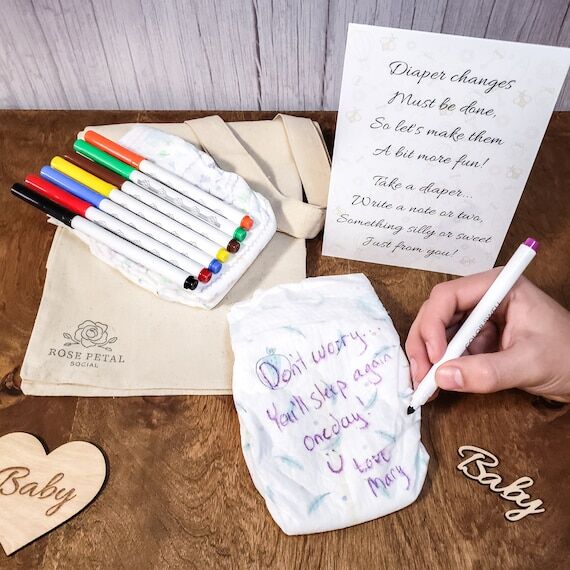 Diaper changes
Must be done,
So let's make them
A bit more fun!
Take a diaper...
Write a note or two,
Something silly or sweet
Just from you!
ROSE PETAL
SOCIAL
Don't worry...
You'll sleep again
one day!
Love
Mary
Baby
Baby